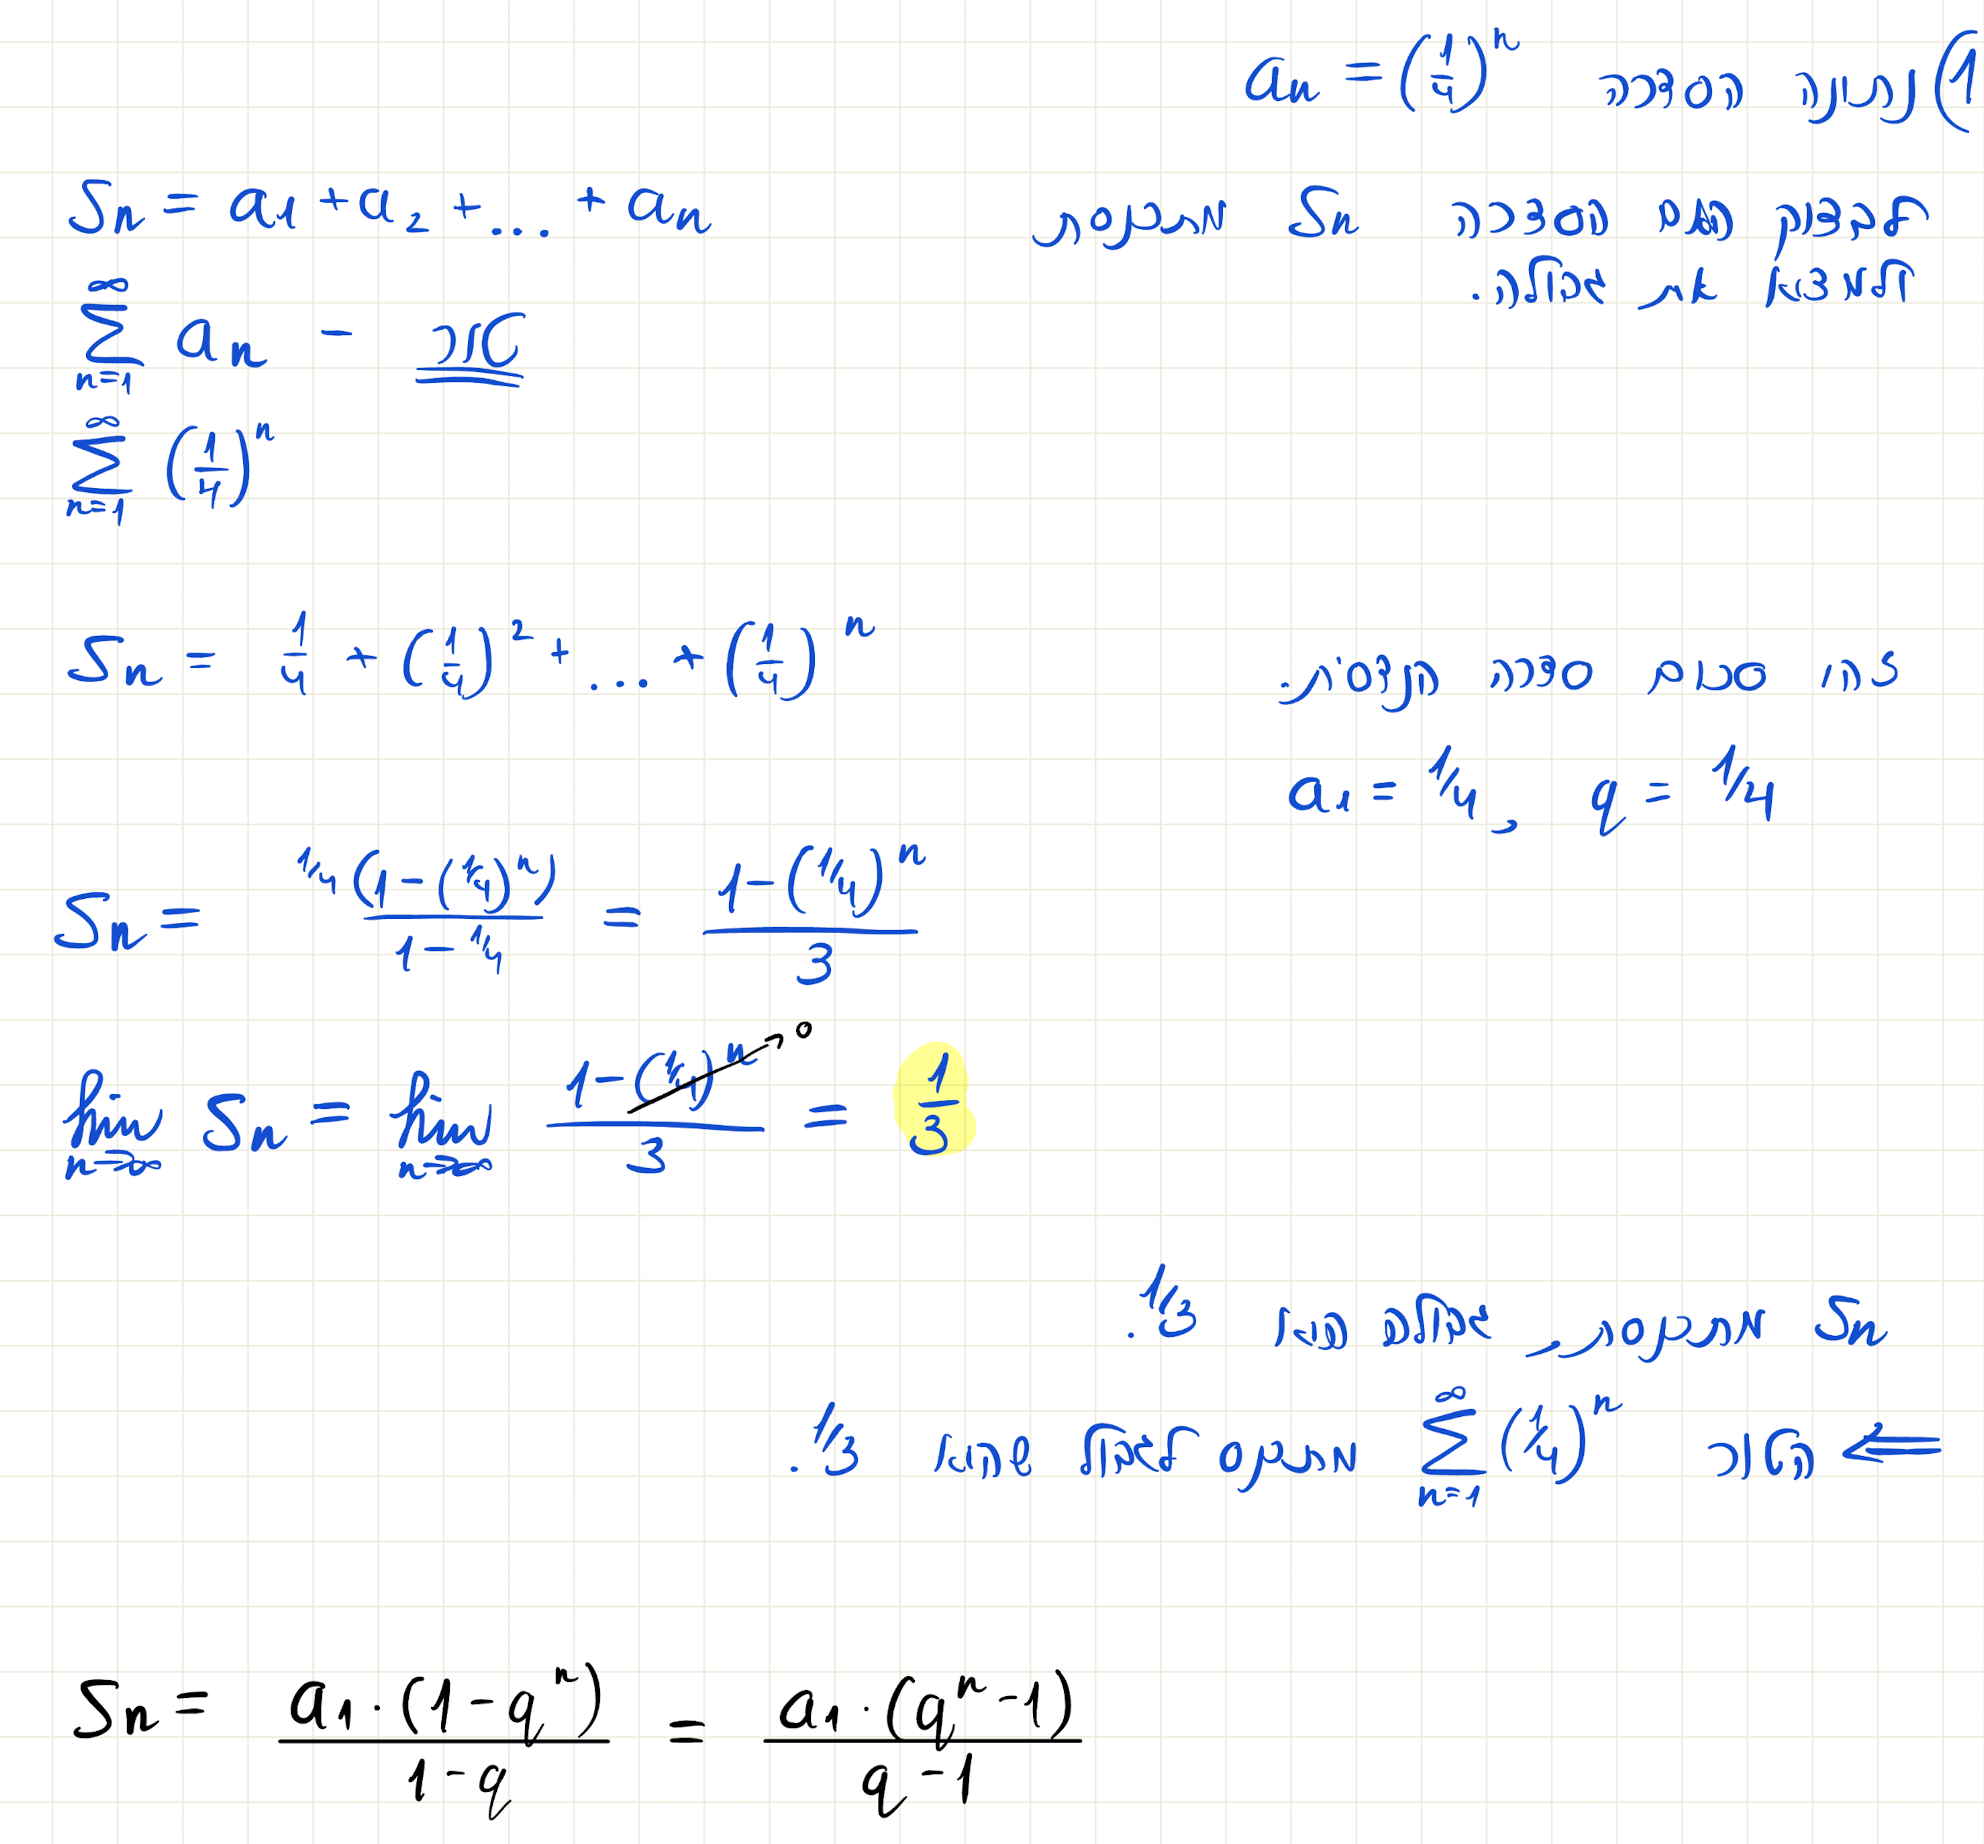 1) נתונה הסדרה aₙ = (1/4)ⁿ
לבדוק האם הסדרה Sₙ מתכנסת
ולמצוא את גבולה.
Sₙ = a₁ + a₂ + ... + aₙ
∑_{n=1}^{∞} aₙ – טור
∑_{n=1}^{∞} (1/4)ⁿ
Sₙ = 1/4 + (1/4)² + ... + (1/4)ⁿ
זהו סכום סדרה הנדסית.
a₁ = 1/4, q = 1/4
Sₙ = 1/4 (1 – (1/4)ⁿ) / (1 – 1/4) = (1 – (1/4)ⁿ) / 3
lim_{n→∞} Sₙ = lim_{n→∞} (1 – (1/4)ⁿ→0) / 3 = 1/3
Sₙ מתכנסת, גבולה הוא 1/3.
⇐ הטור ∑_{n=1}^{∞} (1/4)ⁿ מתכנס לגבול שהוא 1/3.
Sₙ = a₁·(1–qⁿ) / (1–q) = a₁·(qⁿ–1) / (q–1)